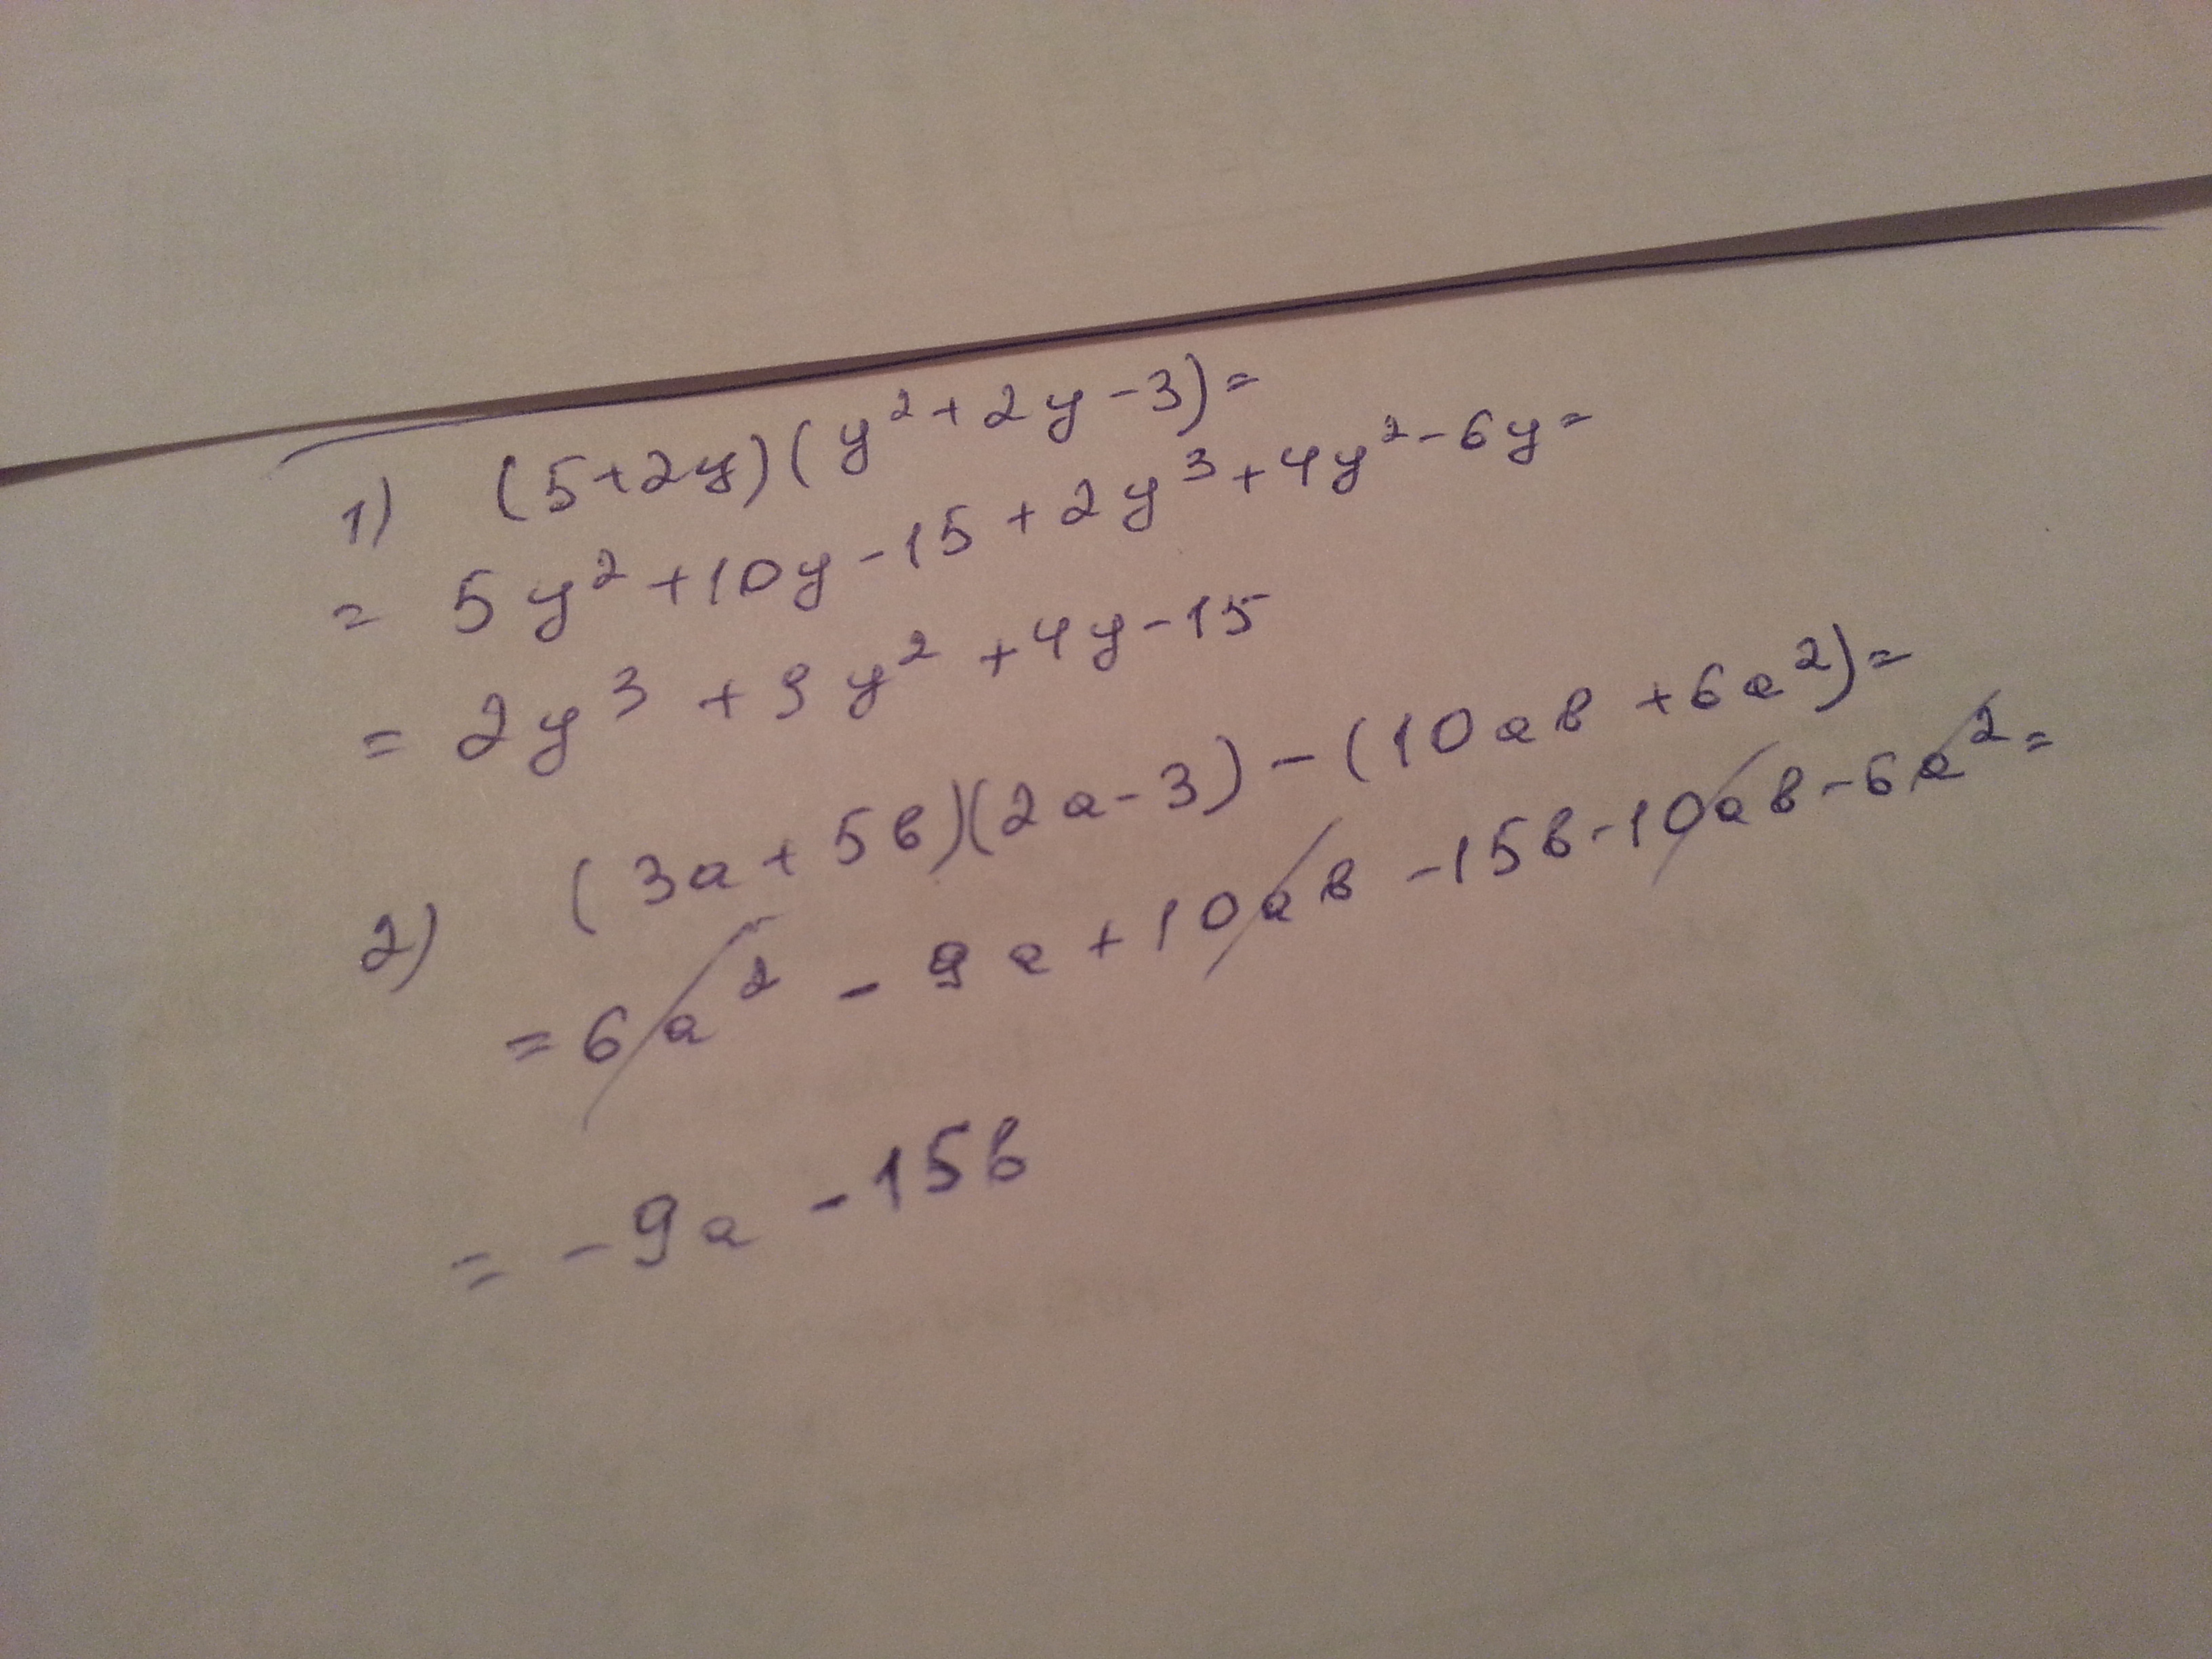 1) (5+2y)(y²+2y-3)=
= 5y²+10y-15+2y³+4y²-6y=
= 2y³+9y²+4y-15
2) (3a+5b)(2a-3)-(10ab+6a²)=
= 6a²-9a+10ab-15b-10ab-6a²=
= -9a-15b